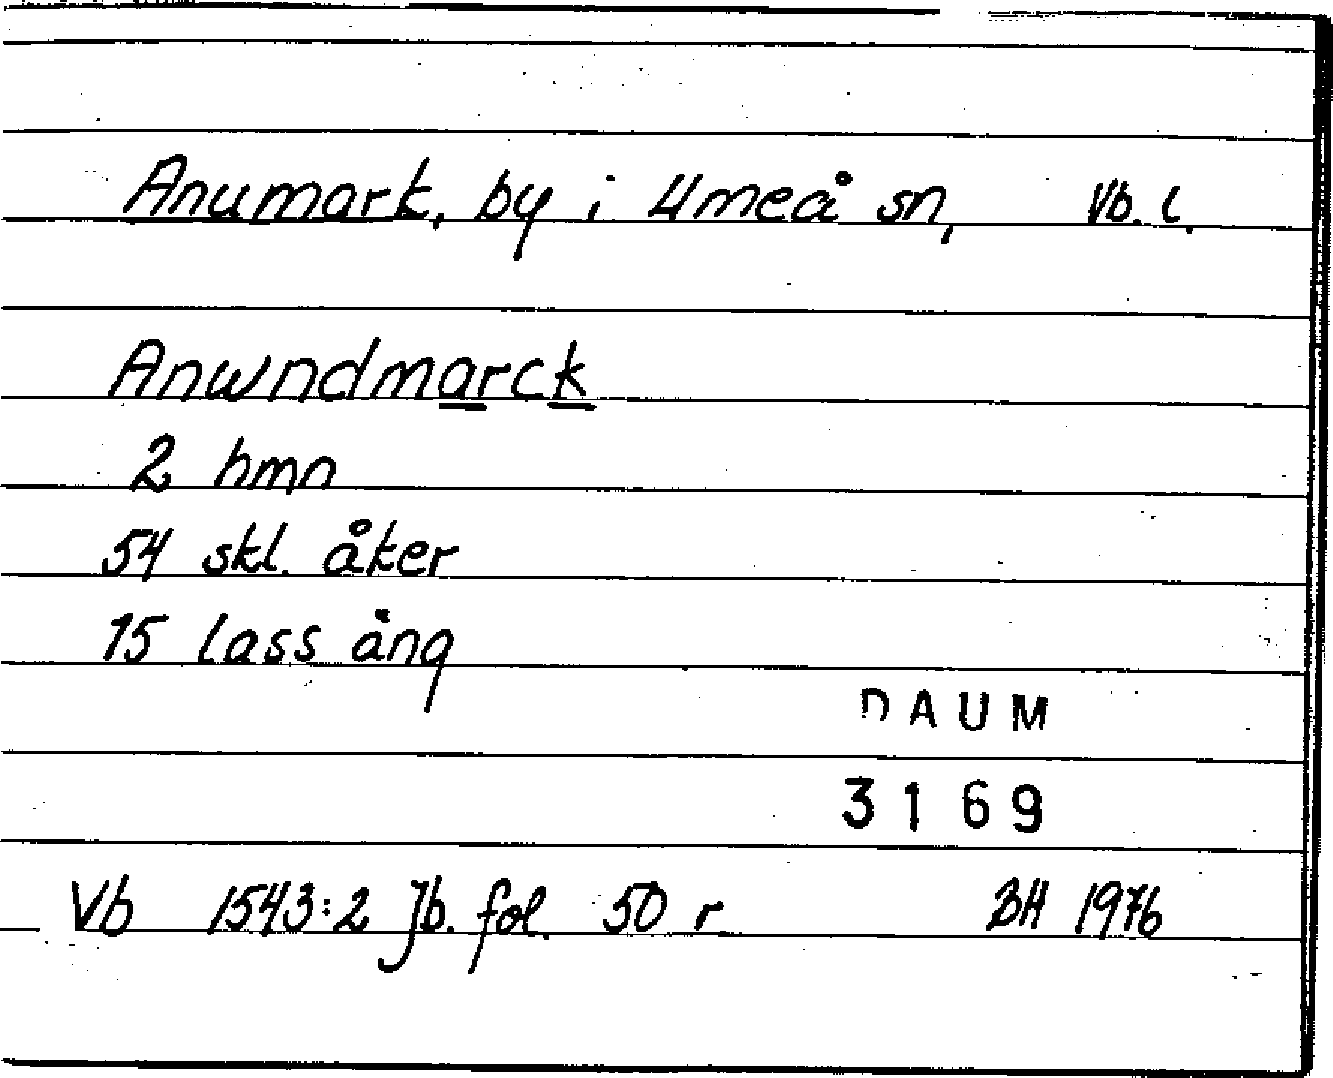 Anumark, by i Umeå sn, Vb. l.
Anwndmarck
2 hmn
54 skl. åker
15 lass äng
DAUM
3169
Vb 1543:2 Jb. fol. 50 r BH 1976